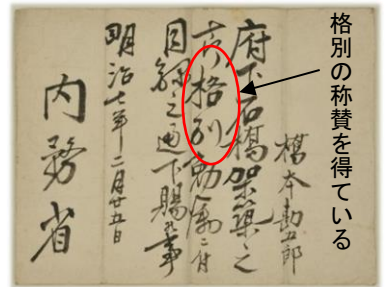 格別の称賛を得ている
橋本勘五郎
府下石橋架築之
節格別勉励ニ付
目録之通下賜候事
明治七年二月廿五日
内務省